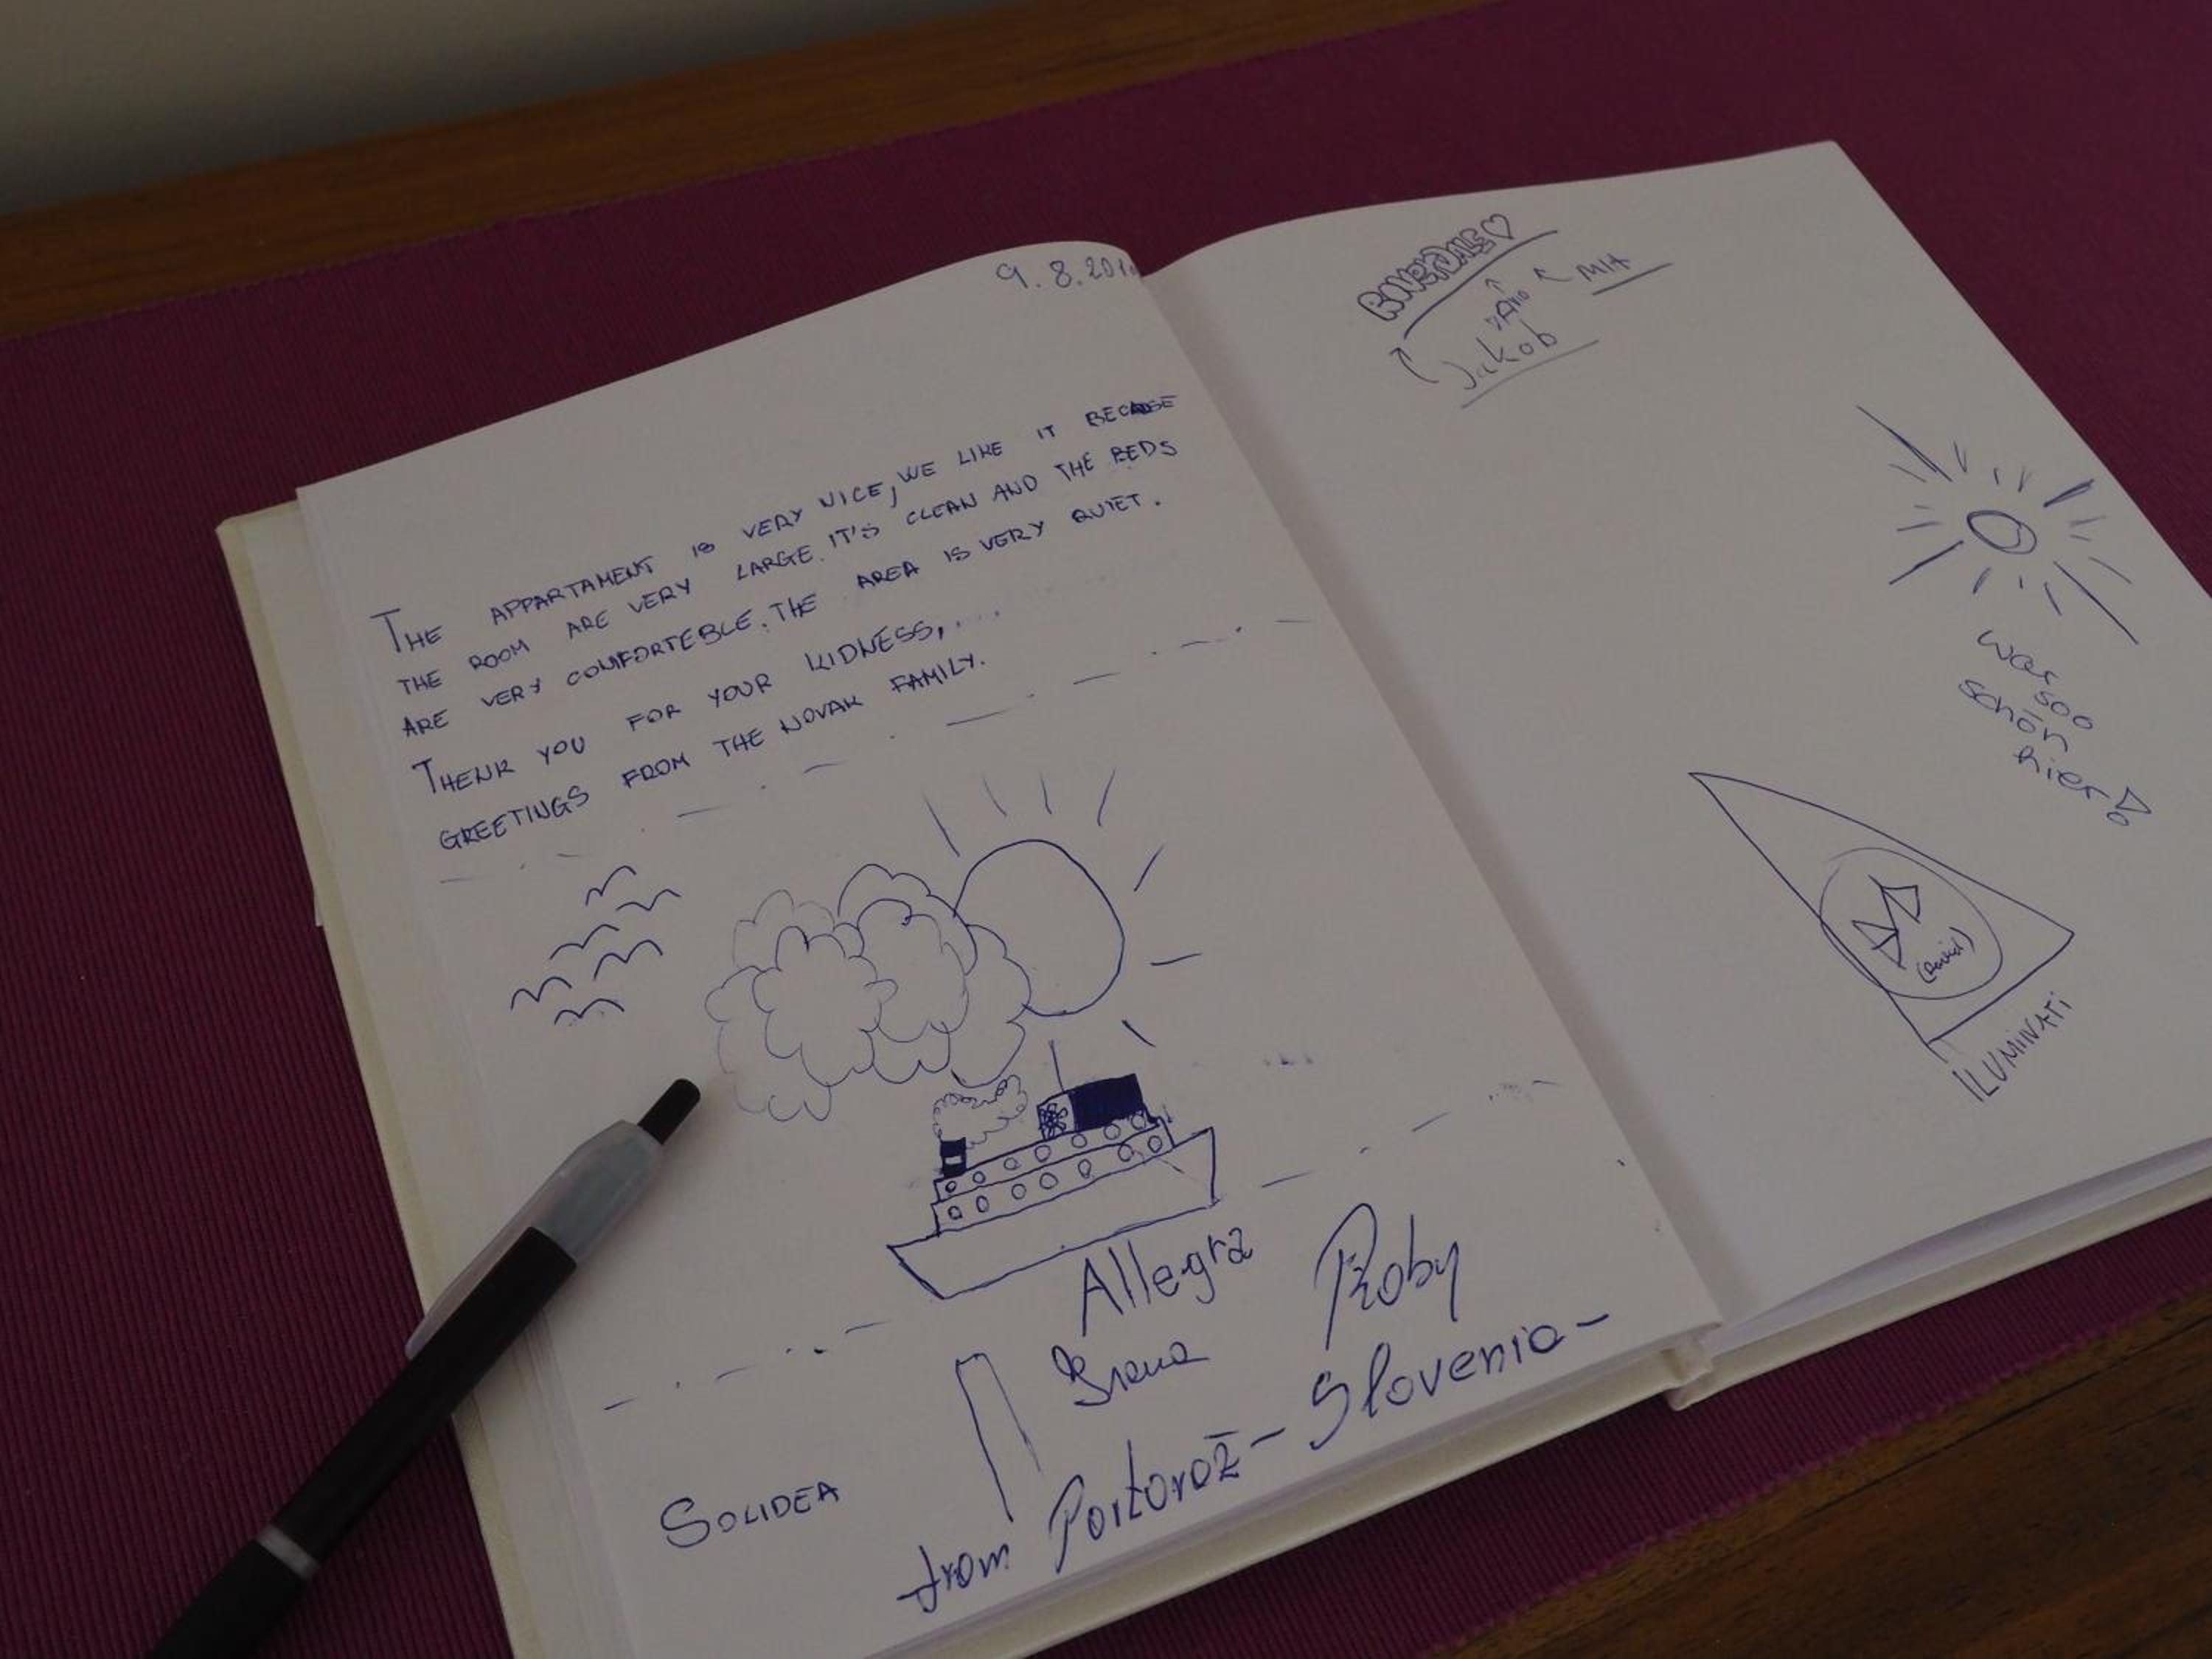 9.8.201
THE APPARTAMENT IS VERY NICE, WE LIKE IT BECAUSE
THE ROOM ARE VERY LARGE. IT'S CLEAN AND THE BEDS
ARE VERY COMFORTEBLE. THE AREA IS VERY QUIET.
THENK YOU FOR YOUR KIDNESS,....
GREETINGS FROM THE NOVAK FAMILY.
Allegra
Roby
SOLIDEA
from Portorož - Slovenia -
RIVERDALE ♡
Jakob
war
soo
schön
hier!
ILUMINATI